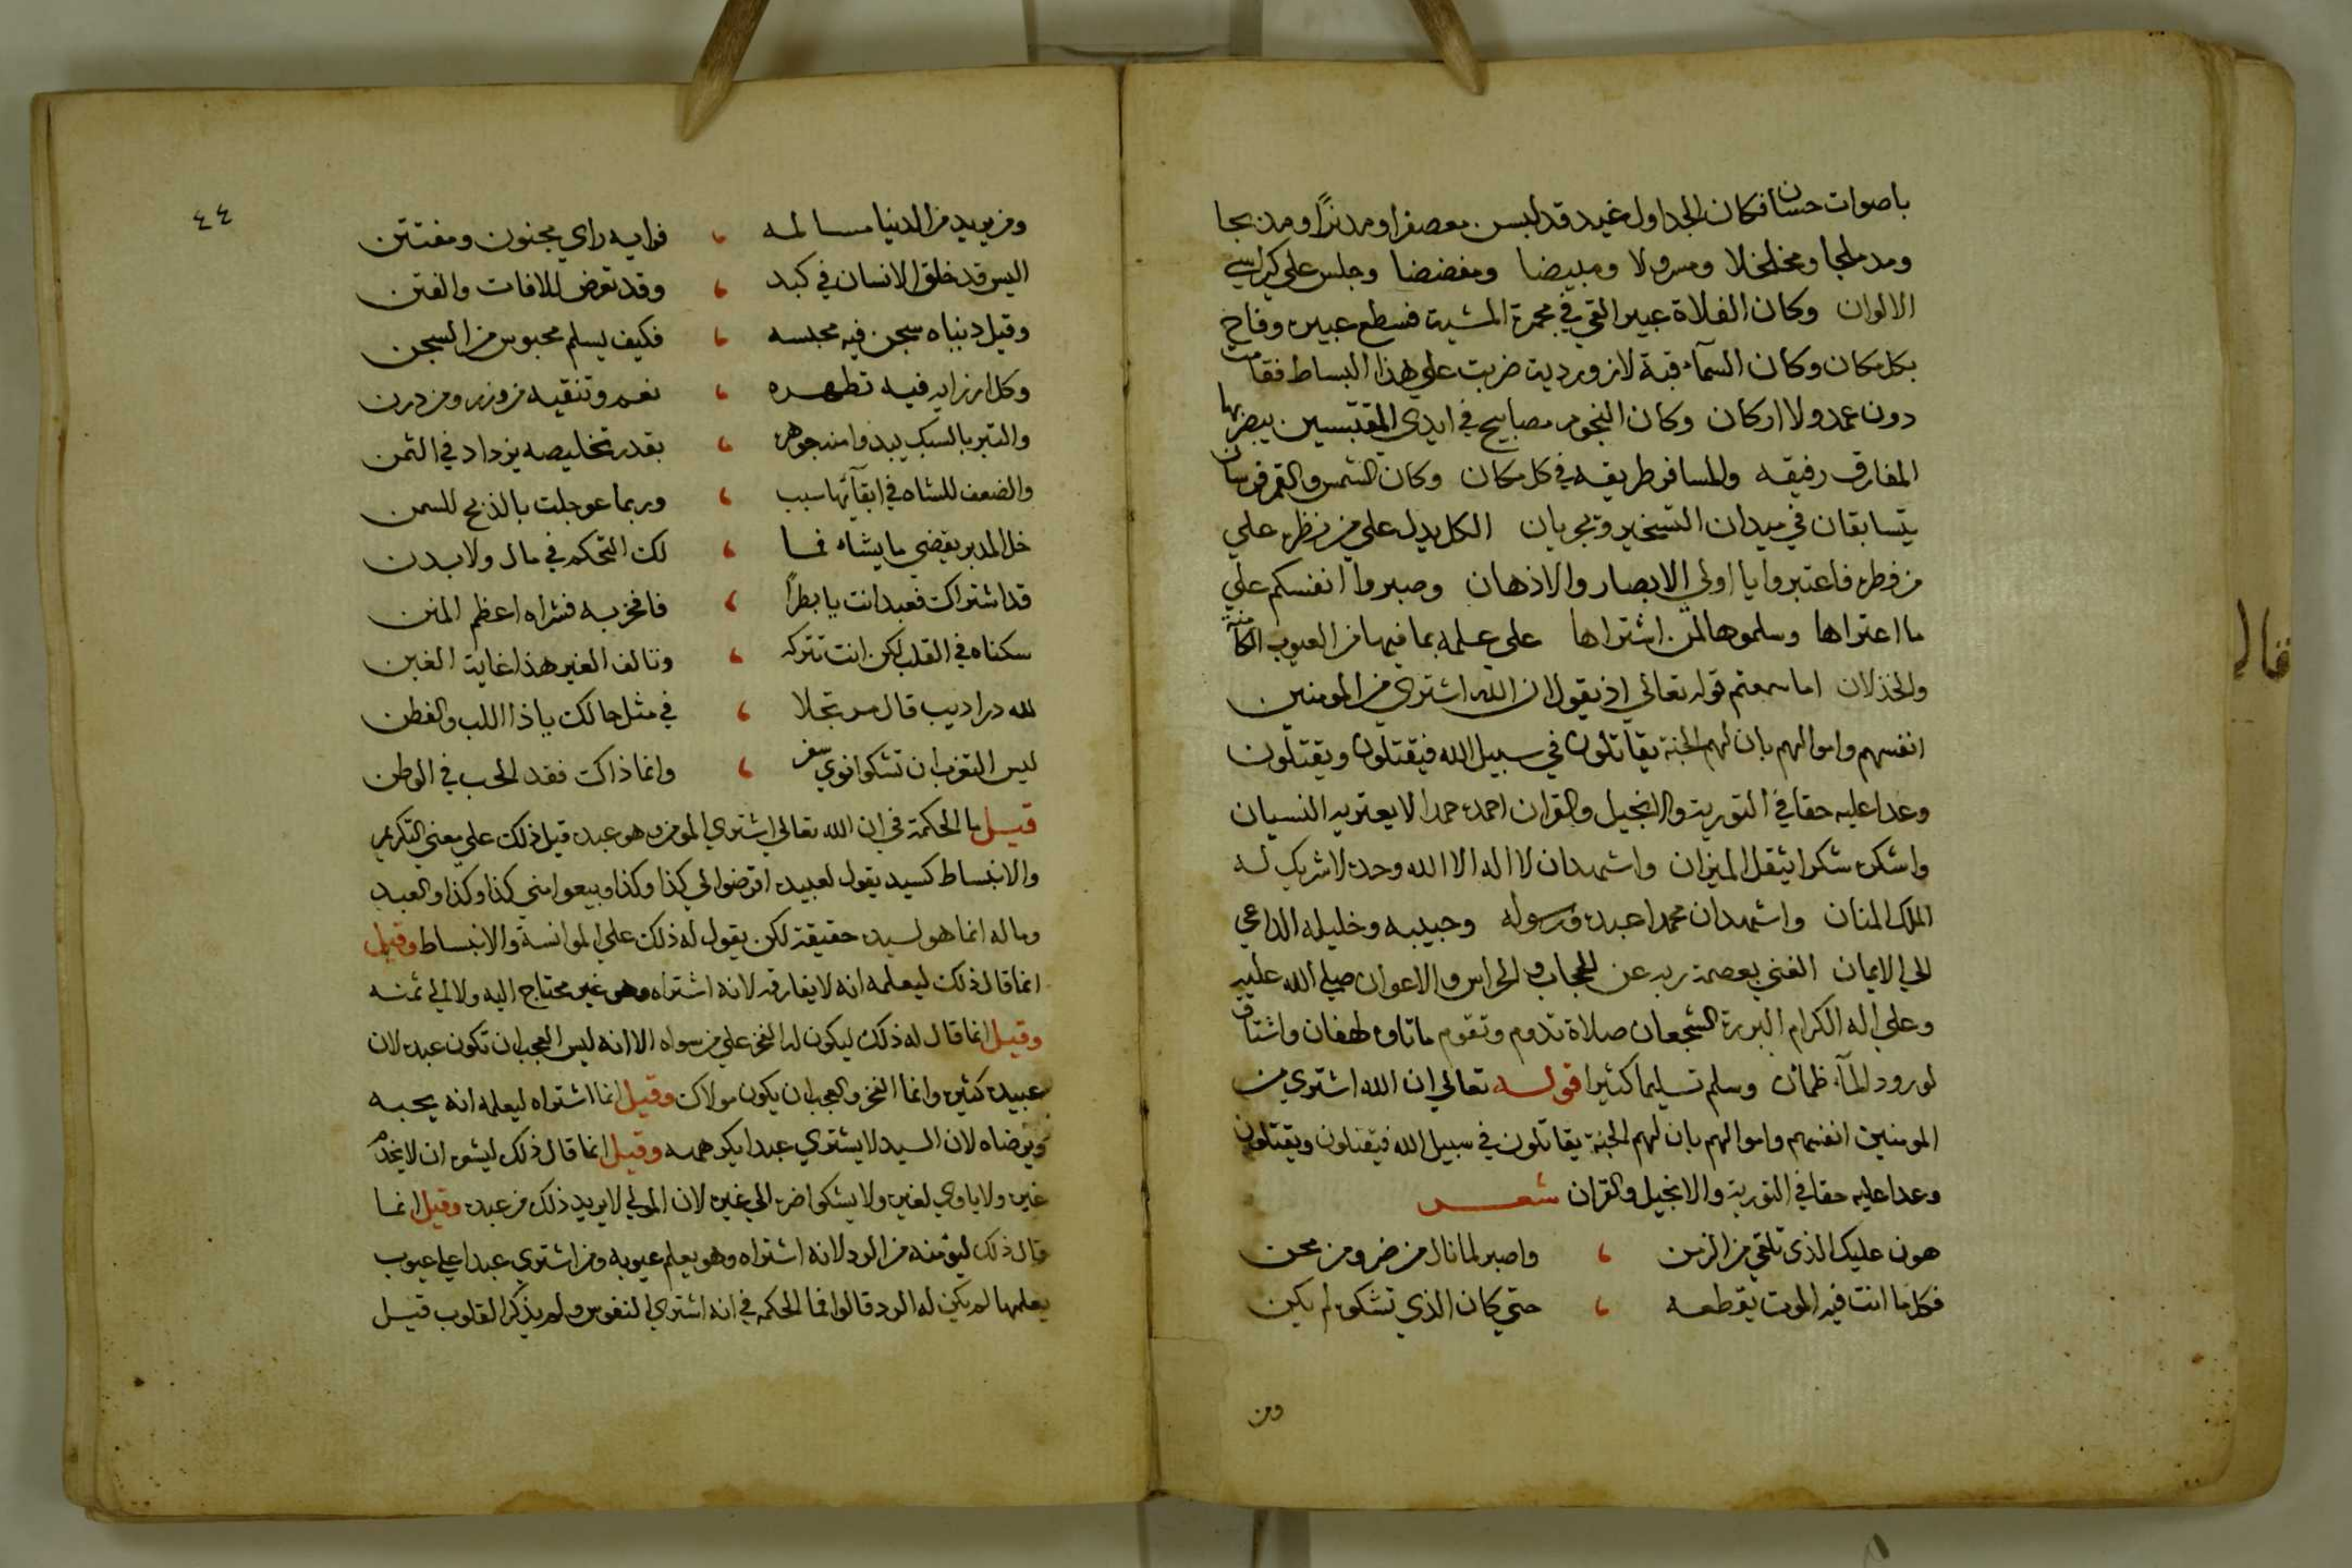 باصوات حسان فكان الجداول غيد قد لبسن معصفرا ومدنرًا ومدبجا
ومدملجا ومخلخلا ومسرولا ومبيضا ومفضضا وجلس علي كراسي
الالوان وكان الفلاة عبير القي في مجمرة المشية فسطع عبيره وفاح
بكل مكان وكان السمآء قبة لازوردية ضربت علي هذا البساط فقامت
دون عمد ولا اركان وكان النجوم مصابيح في ايدي المقتبسين يبصر بها
المفارق رفيقه والمسافر طريقه في كل مكان وكان الشمس والقمر فرسان
يتسابقان في ميدان التسخير ويجريان الكل يدل علي من نظره علي
من فطره فاعتبروا يا اولي الابصار والاذهان وصبروا انفسكم علي
ما اعتراها وسلموها لمن اشتراها علي علمه بما فيها من العيوب الكامنة
والخذلان اما سمعتم قوله تعالي اذ يقول ان الله اشتري من المومنين
انفسهم واموالهم بان لهم الجنة يقاتلون في سبيل الله فيقتلون ويقتلون
وعدا عليه حقا في التورية والانجيل والقران احمده حمدا لا يعتريه النسيان
واشكره شكرا يثقل الميزان واشهد ان لا اله الا الله وحده لا شريك له
الملك المنان واشهد ان محمدا عبده ورسوله وحبيبه وخليله الداعي
الي الايمان الغني بعصمة ربه عن الحجاب والحراس والاعوان صلي الله عليه
وعلي اله الكرام البررة الشجعان صلاة تدوم وتقوم ما تاوه لهفان واشتاق
لورود المآء ظمان وسلم تسليما كثيرا قوله تعالي ان الله اشتري من
المومنين انفسهم واموالهم بان لهم الجنة يقاتلون في سبيل الله فيقتلون ويقتلون
وعدا عليه حقا في التورية والانجيل والقران شعر
هون عليك الذي تلقي من الزمن ، واصبر لما نال من ضر ومن محن
فكل ما انت فيه الموت يقطعه ، حتي كان الذي تشكوه لم يكن
ومن
قال
٤٤
ومن يريد من الدنيا مسالمه ، فرايه راي مجنون ومفتتن
اليس قد خلق الانسان في كبد ، وقد تعرض للافات والفتن
وقيل دنياه سجن فيه مجلسه ، فكيف يسلم محبوس من السجن
وكل ارزايه فيه تطهره ، نعم وتنقيه من وزر ومن درن
والتبر بالسبك يبدوا منه جوهره ، بقدر تخليصه يزداد في الثمن
والضعف للشاه في ابقآئها سبب ، وربما عوجلت بالذبح للسمن
خل المدبر يقضي ما يشاه فما ، لك التحكم في مال ولا بدن
قد اشتراك فعبد انت يا بطرًا ، فافخر به فشراه اعظم المنن
سكناه في القلب لكن انت تتركه ، وتالف الغير هذا غاية الغبن
لله در اديب قال مرتجلا ، في مثل حالك يا ذا اللب والفطن
ليس التغرب ان تشكوا نوي سفر ، وانما ذاك فقد الحب في الوطن
قيل ما الحكمة في ان الله تعالي اشتري المومن وهو عبده قيل ذلك علي معني التكريم
والانبساط كسيد يقول لعبيده اقرضوا لي كذا وكذا وبيعوا مني كذا وكذا والعبد
وماله انما هو لسيده حقيقة لكن يقول له ذلك علي الموانسة والانبساط وقيل
انما قال ذلك ليعلمه انه لا يفارقه لانه اشتراه وهو غير محتاج اليه ولا الي ثمنه
وقيل انما قال له ذلك ليكون له الفخر علي من سواه الا انه ليس العجب ان تكون عبده لان
عبيده كثيره وانما الفخر والعجب ان يكون مولاك وقيل انما اشتراه ليعلمه انه يحبه
ويرضاه لان السيد لا يشتري عبدا يكرهه وقيل انما قال ذلك ليشعره ان لا يخدم
غيره ولا ياوي لغيره ولا يشكوا ضره الي غيره لان المولي لا يريد ذلك من عبده وقيل انما
قال ذلك ليؤمنه من الرد لانه اشتراه وهو يعلم عيوبه ومن اشتري عبدا علي عيوب
يعلمها لم يكن له الرد قالوا فما الحكمه في انه اشتري النفوس ولم يذكر القلوب قيل